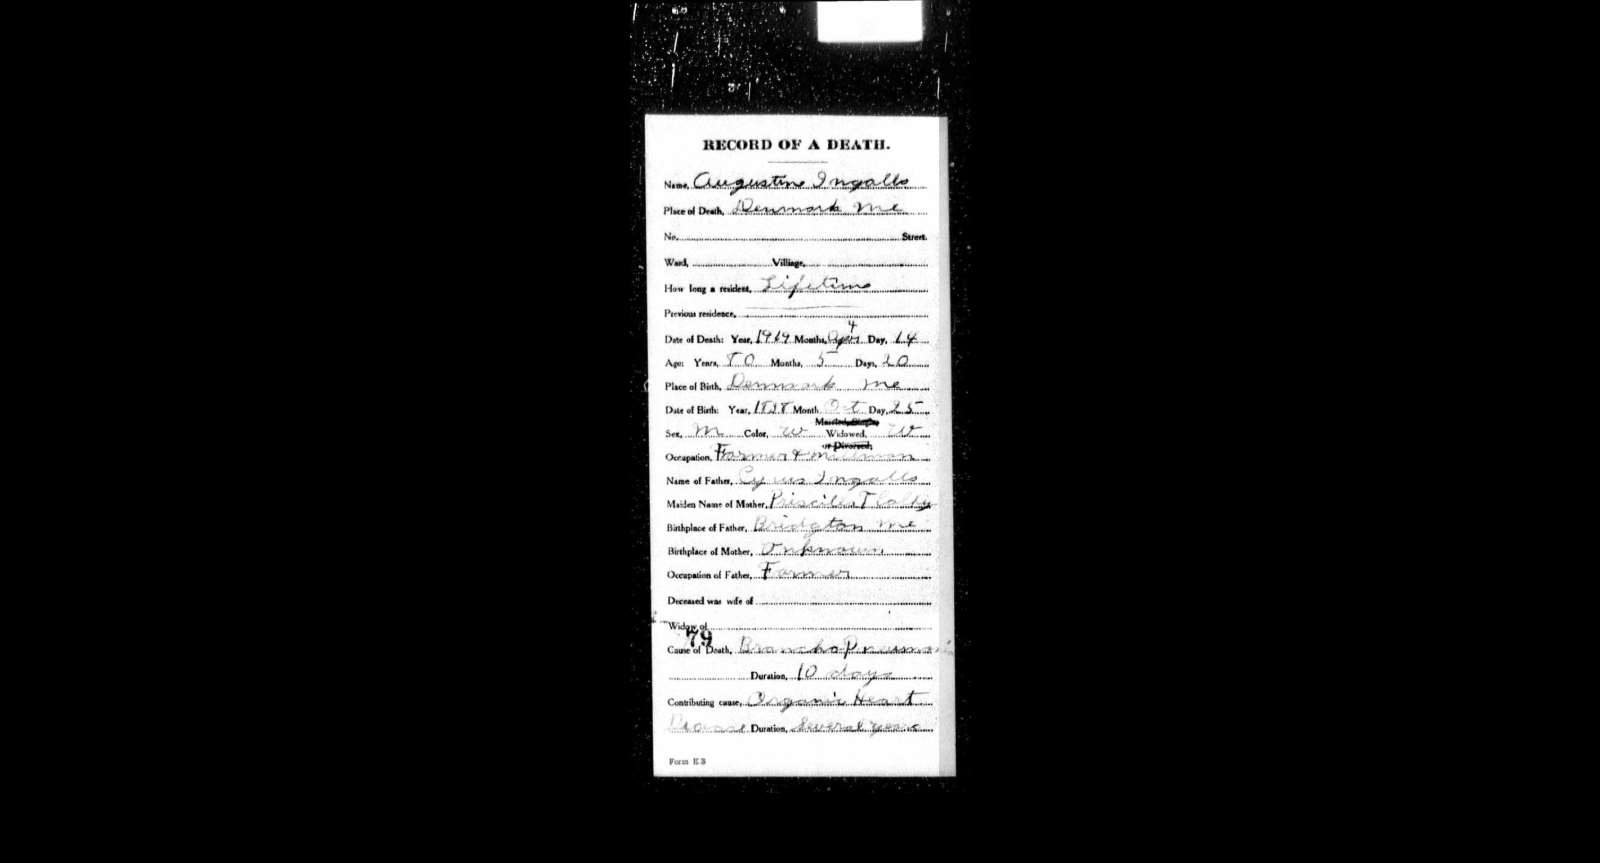 RECORD OF A DEATH.
Name, Augustine Ingalls
Place of Death, Denmark Me
No. Street.
Ward, Village,
How long a resident, Lifetime
Previous residence,
4
Date of Death: Year, 1919 Months, Apr Day, 14
Age: Years, 80 Months, 5 Days, 20
Place of Birth, Denmark Me
Date of Birth: Year, 1838 Month Oct Day, 25
Married, Single,
Sex, M Color, W Widowed, W
or Divorced,
Occupation, Farmer & millman
Name of Father, Cyrus Ingalls
Maiden Name of Mother, Priscilla T
Birthplace of Father, Bridgton Me
Birthplace of Mother, Unknown
Occupation of Father, Farmer
Deceased was wife of
Widow of
79
Cause of Death, Broncho Pneumonia
Duration, 10 days
Contributing cause, Organic Heart
Disease Duration, Several years
Form E 3